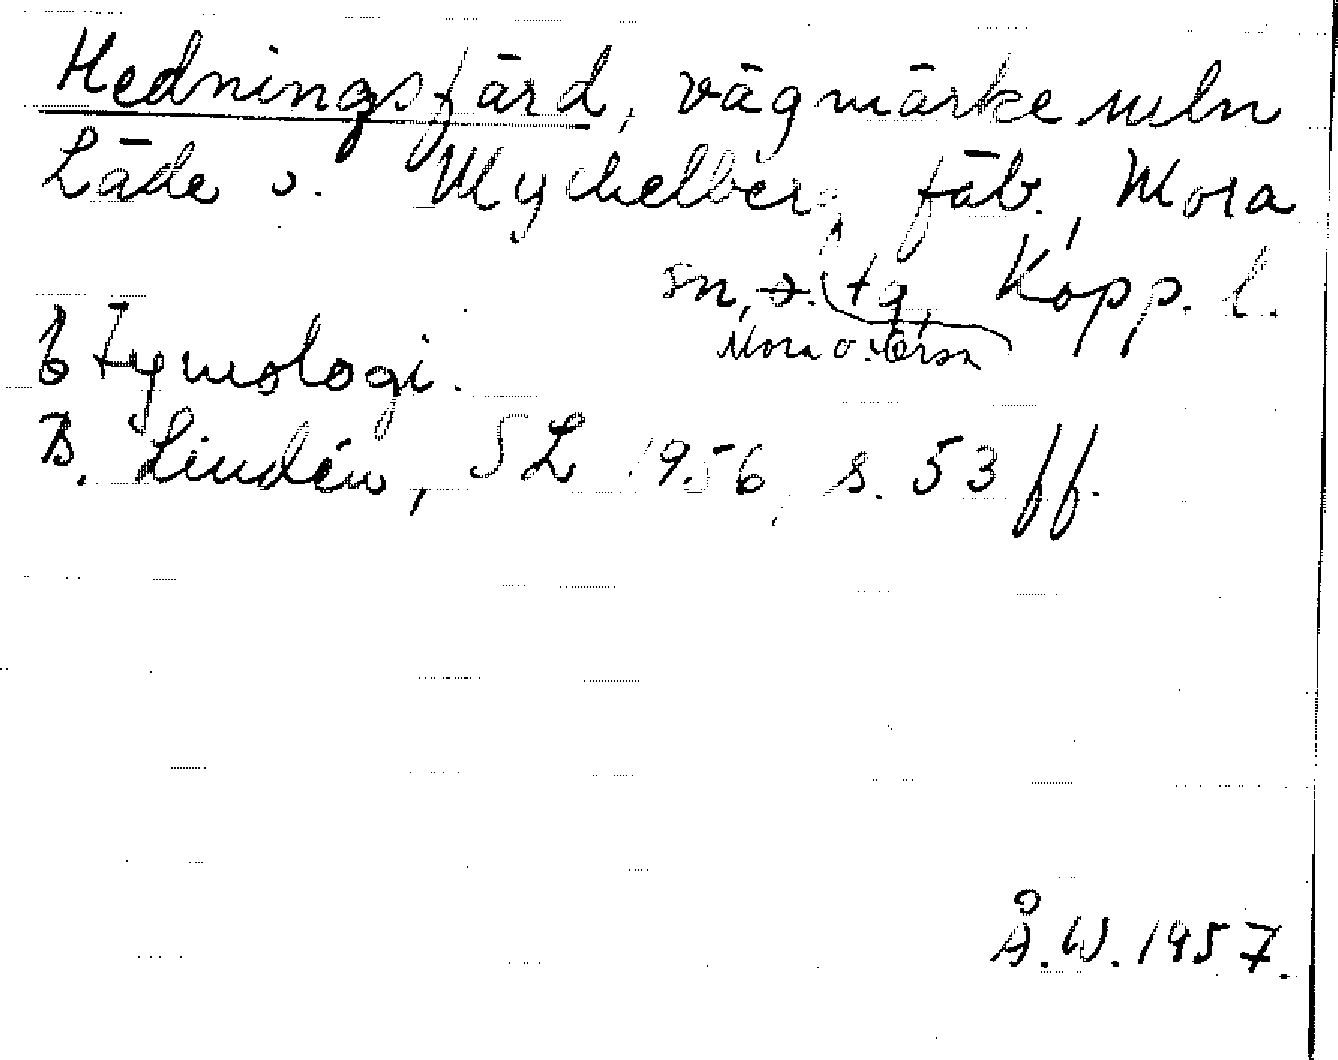 Hedningsfärd, vägmärke mln
Läde o. Myckelberg, fäb., Mora
sn, o. tg, Kopp. l.
Mora o. Orsa
Etymologi.
B. Lindén, SL 1956, s. 53 ff.
Å.W. 1957.